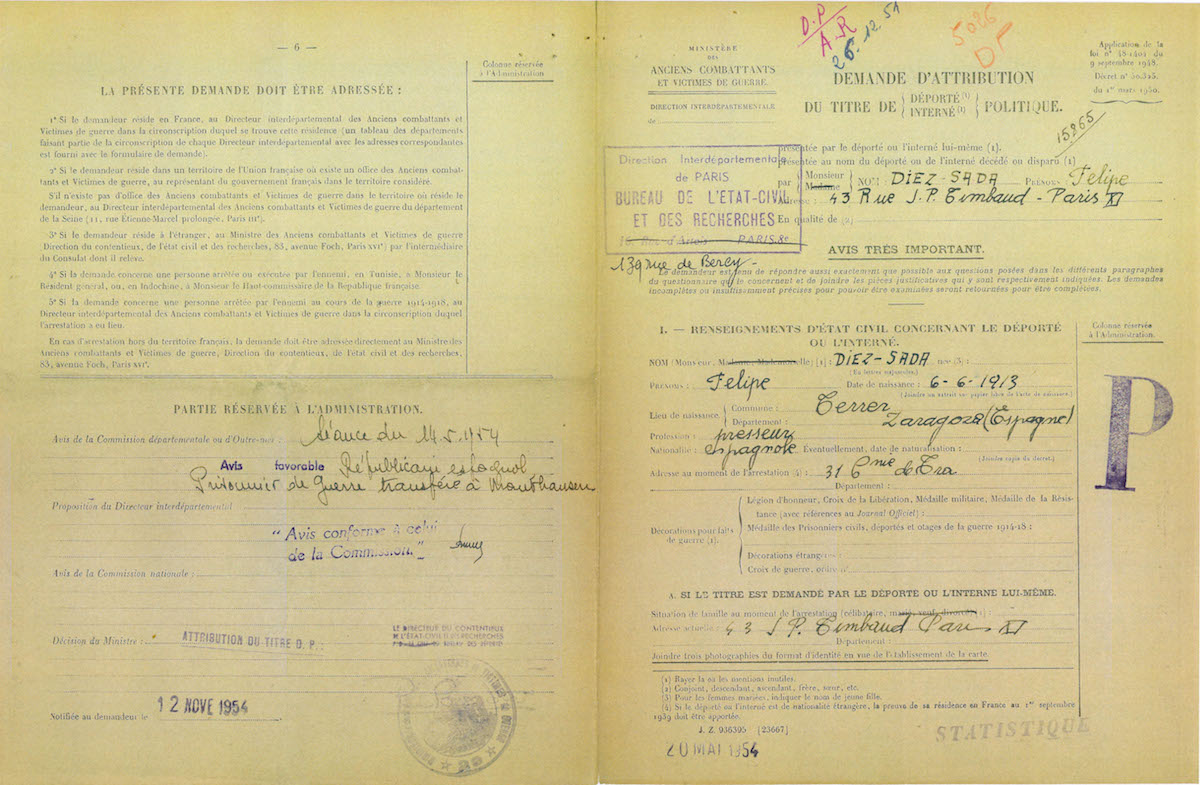 — 6 —
Colonne réservée
à l'Administration
LA PRÉSENTE DEMANDE DOIT ÊTRE ADRESSÉE :
1° Si le demandeur réside en France, au Directeur interdépartemental des Anciens combattants et
Victimes de guerre dans la circonscription duquel se trouve cette résidence (un tableau des départements
faisant partie de la circonscription de chaque Directeur interdépartemental avec les adresses correspondantes
est fourni avec le formulaire de demande).
2° Si le demandeur réside dans un territoire de l'Union française où existe un office des Anciens combat-
tants et Victimes de guerre, au représentant du gouvernement français dans le territoire considéré.
S'il n'existe pas d'office des Anciens combattants et Victimes de guerre dans le territoire où réside le
demandeur, au Directeur interdépartemental des Anciens combattants et Victimes de guerre du département
de la Seine (11, rue Étienne-Marcel prolongée, Paris IIIe).
3° Si le demandeur réside à l'étranger, au Ministre des Anciens combattants et Victimes de guerre
Direction du contentieux, de l'état civil et des recherches, 83, avenue Foch, Paris XVIe) par l'intermédiaire
du Consulat dont il relève.
4° Si la demande concerne une personne arrêtée ou exécutée par l'ennemi, en Tunisie, à Monsieur le
Résident général, ou, en Indochine, à Monsieur le Haut-commissaire de la République française.
5° Si la demande concerne une personne arrêtée par l'ennemi au cours de la guerre 1914-1918, au
Directeur interdépartemental des Anciens combattants et Victimes de guerre dans la circonscription duquel
l'arrestation a eu lieu.
En cas d'arrestation hors du territoire français, la demande doit être adressée directement au Ministre des
Anciens combattants et Victimes de guerre, Direction du contentieux, de l'état civil et des recherches,
83, avenue Foch, Paris XVIe.
PARTIE RÉSERVÉE À L'ADMINISTRATION.
Avis de la Commission départementale ou d'Outre-mer : Séance du 14.5.1954
Avis favorable Républicain espagnol
Prisonnier de guerre transféré à Mauthausen
Proposition du Directeur interdépartemental
"Avis conforme à celui
de la Commission."
Avis de la Commission nationale :
Décision du Ministre : ATTRIBUTION DU TITRE D. P.
LE DIRECTEUR DU CONTENTIEUX
DE L'ETAT-CIVIL ET DES RECHERCHES
Notifiée au demandeur le 12 NOVE 1954
D.P
A.R
26.12.51
5026
DP
MINISTÈRE
DES
ANCIENS COMBATTANTS
ET VICTIMES DE GUERRE.
DIRECTION INTERDÉPARTEMENTALE
de
Application de la
loi n° 48-1404 du
9 septembre 1948.
Décret n° 50.325
du 1er mars 1950.
DEMANDE D'ATTRIBUTION
DU TITRE DE { DÉPORTÉ (1) INTERNÉ (1) } POLITIQUE.
15865
présentée par le déporté ou l'interné lui-même (1).
présentée au nom du déporté ou de l'interné décédé ou disparu (1)
Direction Interdépartementale
de PARIS
BUREAU DE L'ETAT-CIVIL
ET DES RECHERCHES
16, Rue d'Artois PARIS.8e
139 rue de Bercy -
par { Monsieur Madame } NOM DiEZ-SADA PRÉNOMS Felipe
Adresse : 43 Rue J.P. Timbaud - Paris XI
En qualité de (2)
AVIS TRÈS IMPORTANT.
Le demandeur est tenu de répondre aussi exactement que possible aux questions posées dans les différents paragraphes
du questionnaire qui le concernent et de joindre les pièces justificatives qui y sont respectivement indiquées. Les demandes
incomplètes ou insuffisamment précises pour pouvoir être examinées seront retournées pour être complétées.
I. — RENSEIGNEMENTS D'ÉTAT CIVIL CONCERNANT LE DÉPORTÉ
OU L'INTERNÉ.
Colonne réservée
à l'Administration.
NOM (Monsieur, Madame, Mademoiselle) [1] : DiEZ-SADA née (3) :
(En lettres majuscules.)
PRÉNOMS : Felipe Date de naissance : 6-6-1913
(Joindre un extrait sur papier libre de l'acte de naissance.)
Lieu de naissance { Commune : Terrer
Département : Zaragoza (Espagne)
Profession : presseur
Nationalité : espagnole Éventuellement, date de naturalisation :
(Joindre copie du décret.)
Adresse au moment de l'arrestation (4) : 31 6 nie de Tra
Département :
P
Décorations pour faits
de guerre (1).
Légion d'honneur, Croix de la Libération, Médaille militaire, Médaille de la Résis-
tance (avec références au Journal Officiel) :
Médaille des Prisonniers civils, déportés et otages de la guerre 1914-18 :
Décorations étrangères :
Croix de guerre, ordre n°
A. SI LE TITRE EST DEMANDÉ PAR LE DÉPORTÉ OU L'INTERNÉ LUI-MÊME.
Situation de famille au moment de l'arrestation (célibataire, marié, veuf, divorcé) (1) :
Adresse actuelle : 43 J.P. Timbaud Paris XI
Département :
Joindre trois photographies du format d'identité en vue de l'établissement de la carte.
(1) Rayer la ou les mentions inutiles.
(2) Conjoint, descendant, ascendant, frère, sœur, etc.
(3) Pour les femmes mariées, indiquer le nom de jeune fille.
(4) Si le déporté ou l'interné est de nationalité étrangère, la preuve de sa résidence en France au 1er septembre
1939 doit être apportée.
J. Z. 936395 [23667]
20 MAI 1954
STATISTIQUE